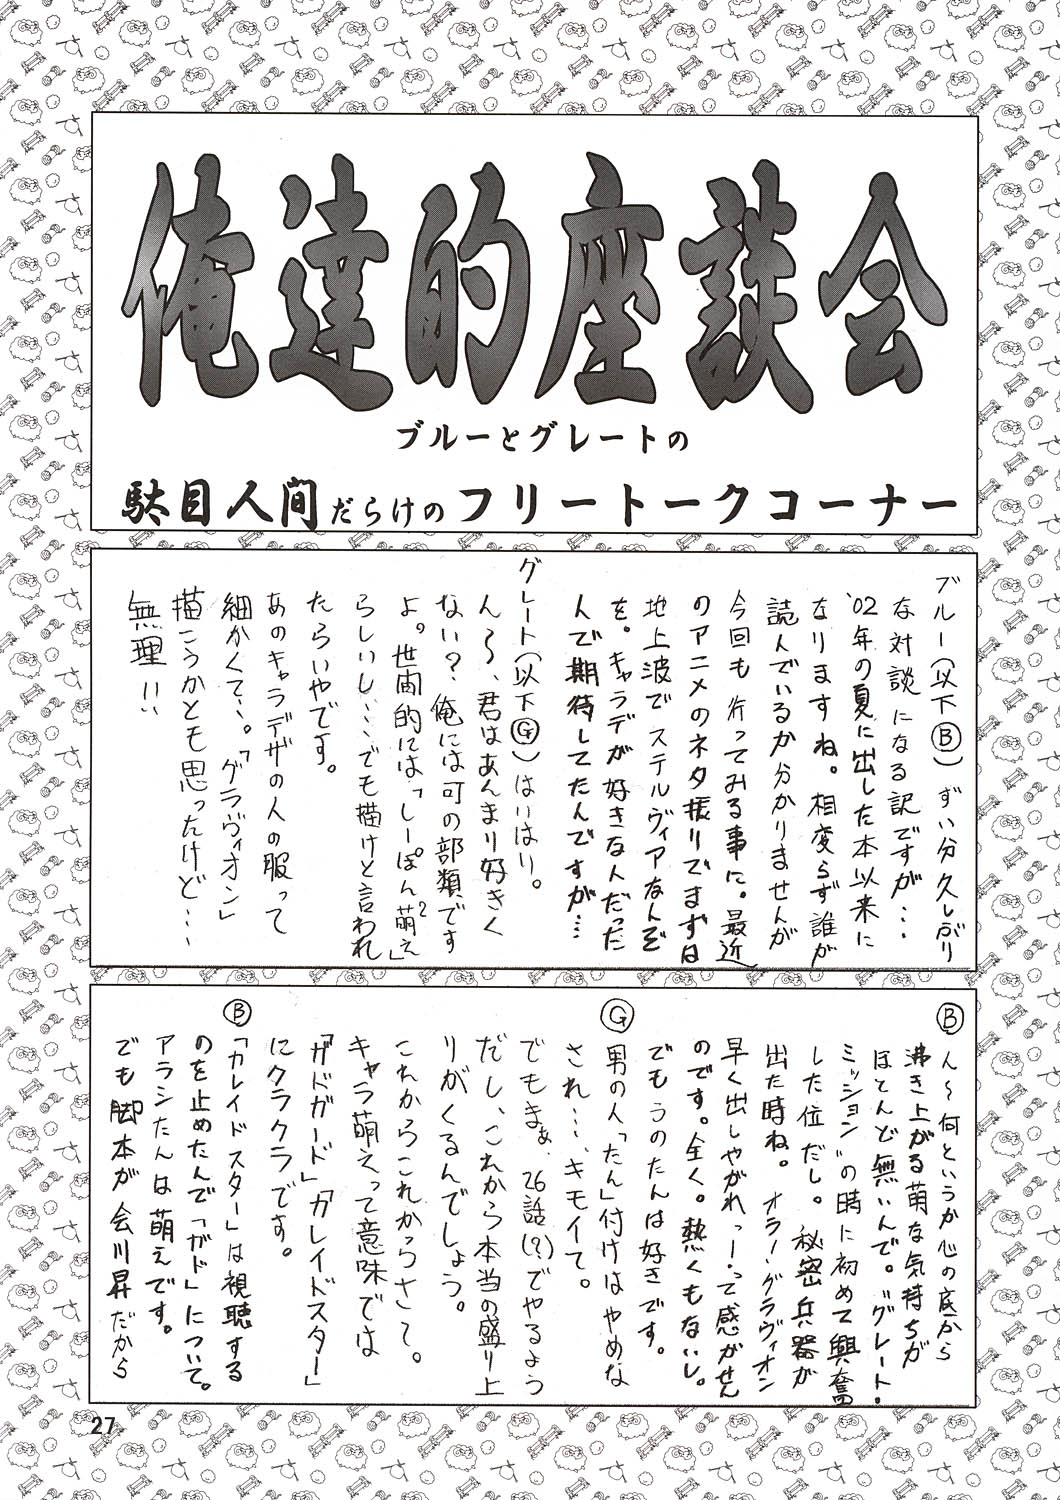 俺達的座談会
ブルーとグレートの
駄目人間だらけのフリートークコーナー
ブルー(以下Ⓑ)ずい分久しぶり
な対談になる訳ですが…
'02年の夏に出した本以来に
なりますね。相変らず誰が
読んでいるか分かりませんが
今回も行ってみる事に。最近
のアニメのネタ振りでまずは
地上波でステルヴィアなんぞ
を。キャラデが好きな人だった
んで期待してたんですが…
グレート(以下Ⓖ)はいはい。
ん～、君はあんまり好きく
ない?俺には可の部類です
よ。世間的には「しーぽん萌え?」
らしいし…でも描けと言われ
たらいやです。
あのキャラデザの人の服って
細かくて…。「グラヴィオン」
描こうかとも思ったけど…
無理!!
Ⓑ
ん～何というか心の底から
沸き上がる萌な気持ちが
ほとんど無いんで。〝グレート・
ミッション〟の時に初めて興奮
した位だし。秘密兵器が
出た時ね。オラーグラヴィオン
早く出しやがれっ!って感がせん
のです。全く。熱くもないし。
でもうのたんは好きです。
Ⓖ
男の人「たん」付けはやめな
され…、キモイて。
でもまぁ、26話(?)でやるよう
だし、これから本当の盛り上
りがくるんでしょう。
これからこれかっらさて。
キャラ萌えって意味では
「ガドガード」「カレイドスター」
にクラクラです。
Ⓑ
「カレイドスター」は視聴する
のを止めたんで「ガド」について。
アラシたんは萌えです。
でも脚本が会川昇だから
27